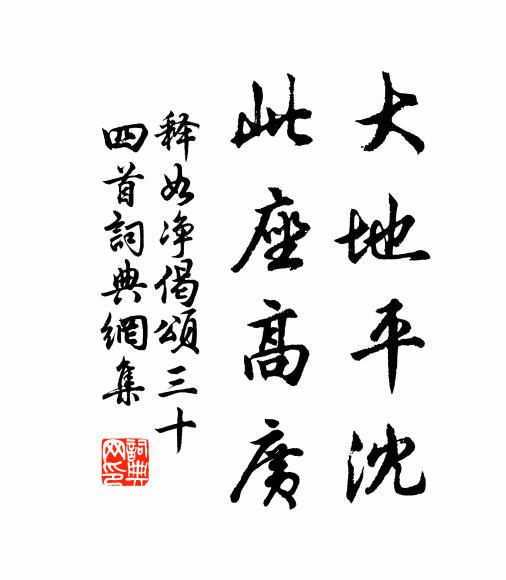 大地平沈
此座高廣
释如净偈頌三十
四首詞典網集
詞典网印